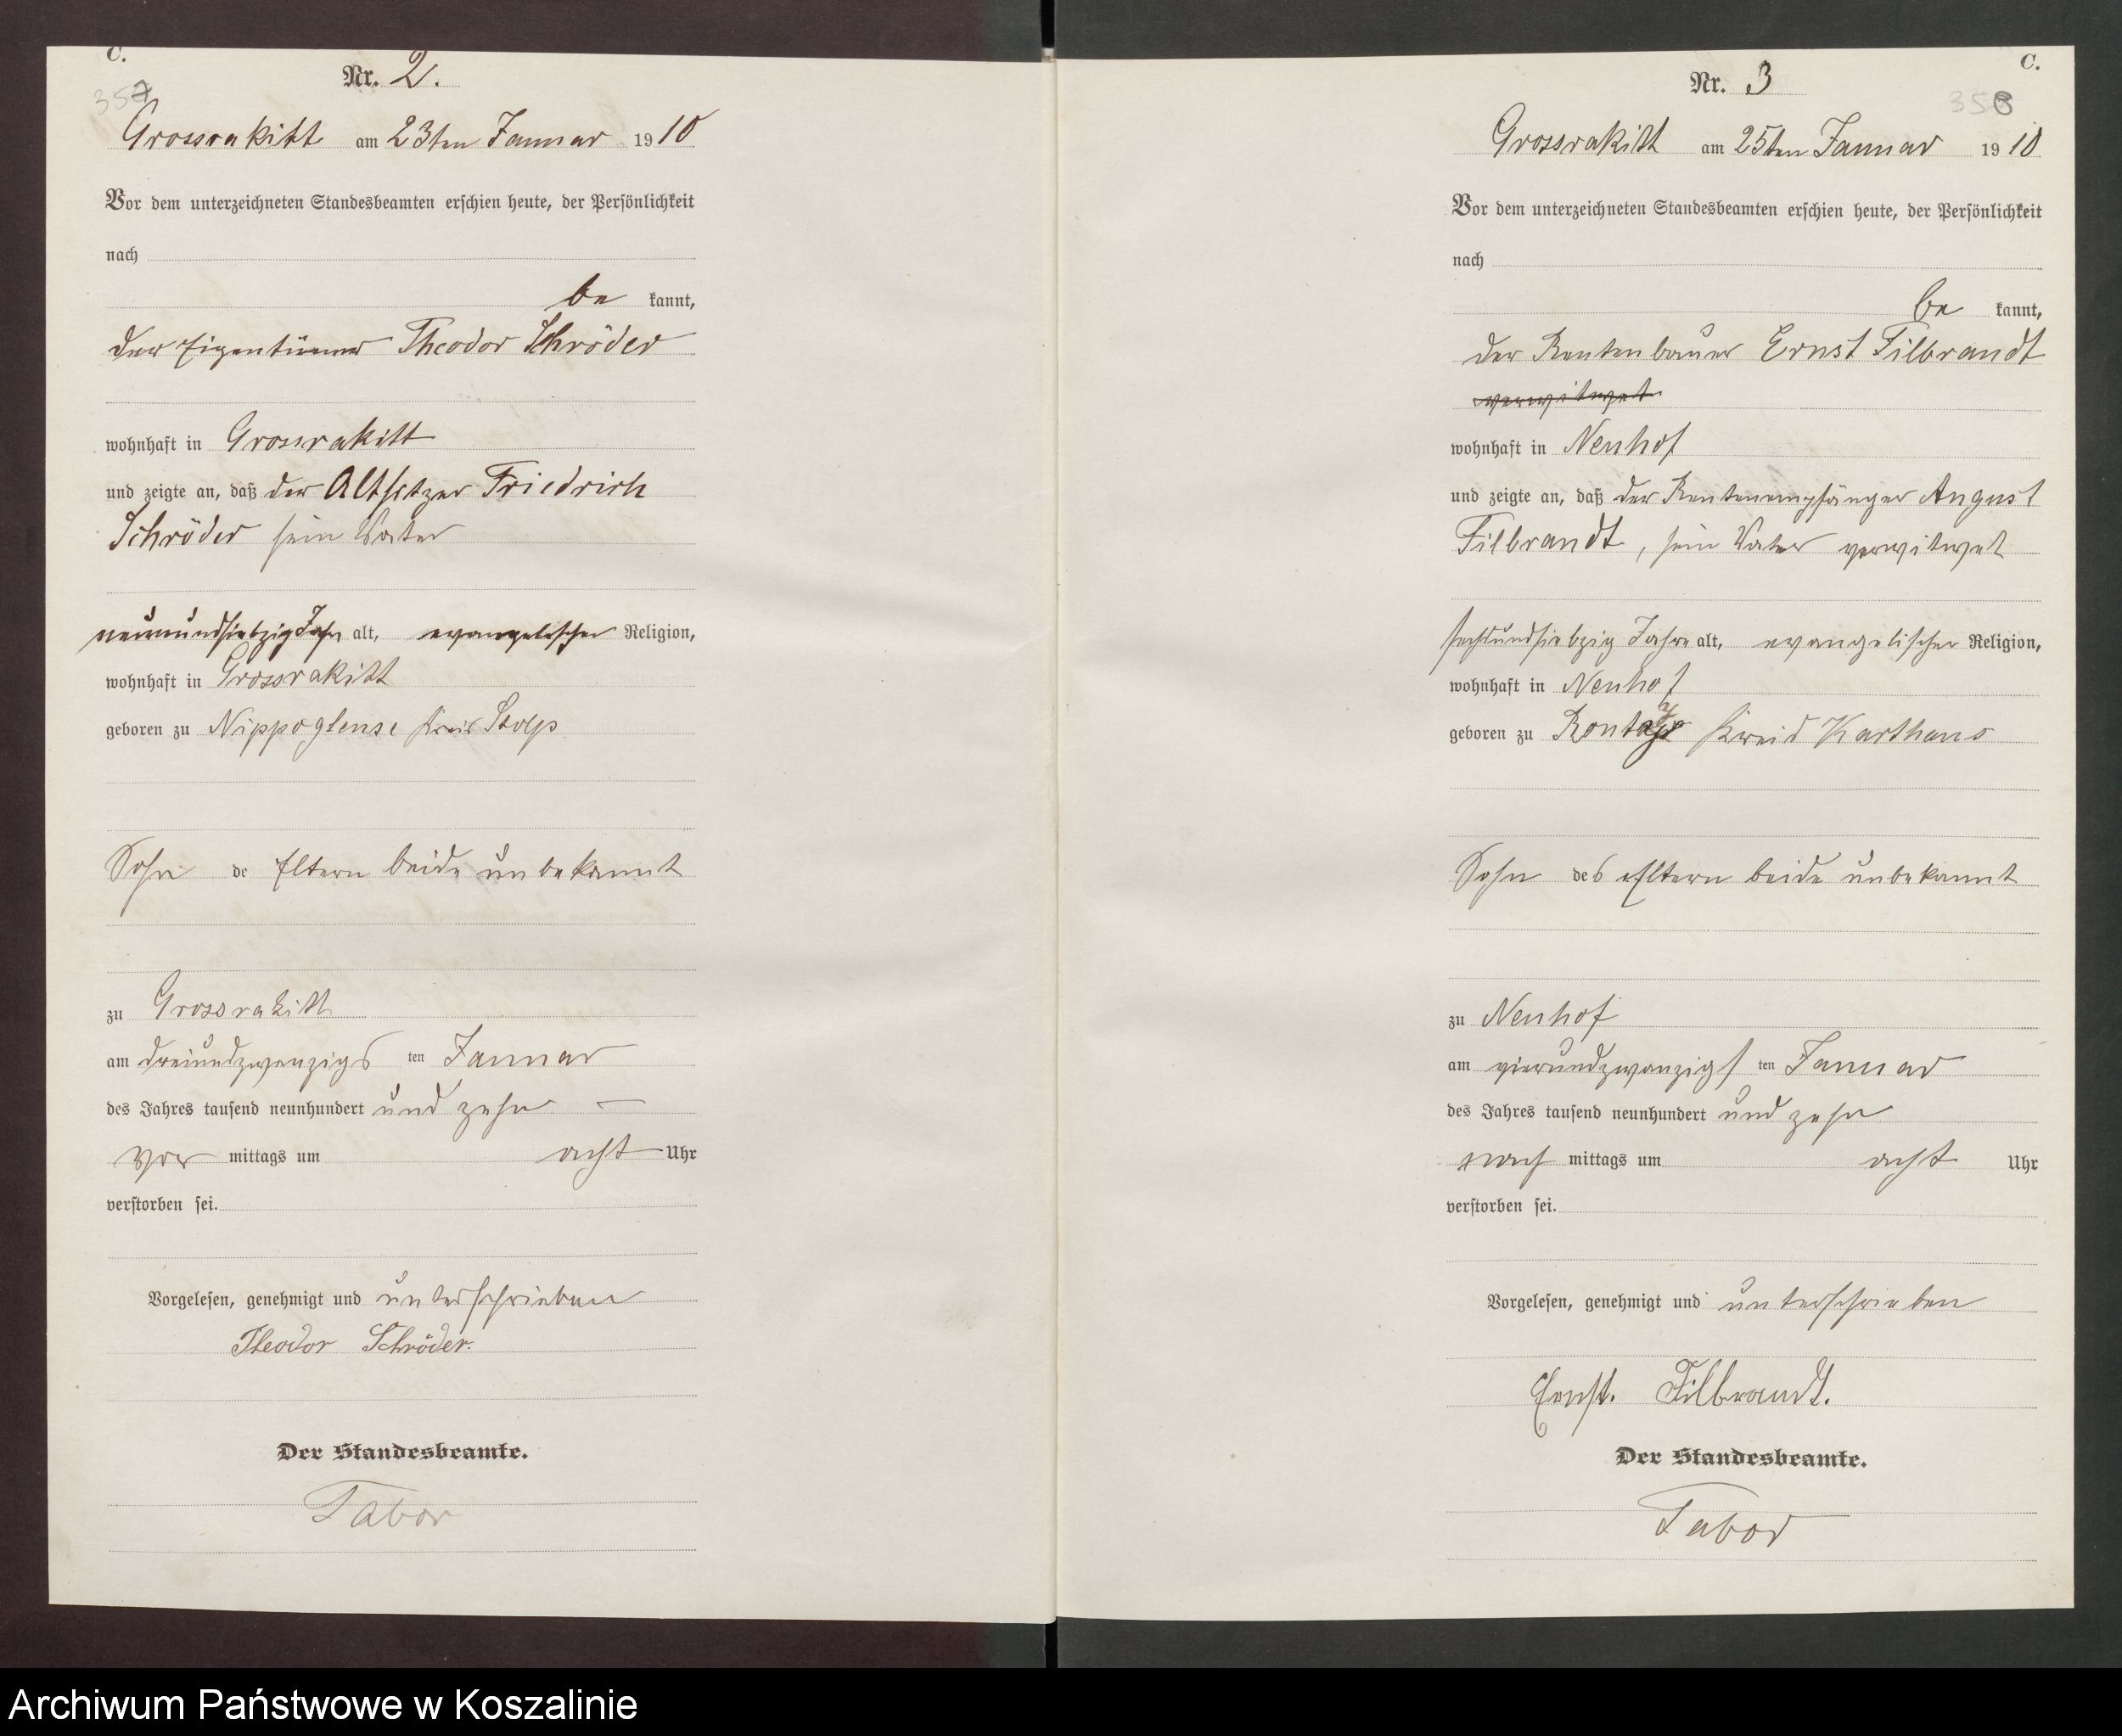 C.
357
Nr. 2.
Grossrakitt am 23ten Januar 1910
Vor dem unterzeichneten Standesbeamten erschien heute, der Persönlichkeit
nach
be kannt,
der Eigentümer Theodor Schröder
wohnhaft in Grossrakitt
und zeigte an, daß der Altsitzer Friedrich
Schröder sein Vater
neunundsiebzig Jahr alt, evangelischer Religion,
wohnhaft in Grossrakitt
geboren zu Nippoglense Kreis Stolp
Sohn de Eltern beide unbekannt
zu Grossrakitt
am dreiundzwanzigs ten Januar
des Jahres tausend neunhundert und zehn —
vor mittags um acht Uhr
verstorben sei.
Vorgelesen, genehmigt und unterschrieben
Theodor Schröder.
Der Standesbeamte.
Tabor
C.
Nr. 3
358
Grossrakitt am 25ten Januar 1910
Vor dem unterzeichneten Standesbeamten erschien heute, der Persönlichkeit
nach
be kannt,
der Rentenbauer Ernst Filbrandt
verwitwet
wohnhaft in Neuhof
und zeigte an, daß der Rentenempfänger August
Filbrandt, sein Vater verwitwet
sechsundsiebzig Jahre alt, evangelischer Religion,
wohnhaft in Neuhof
geboren zu Kreis Karthaus
Sohn des Eltern beide unbekannt
zu Neuhof
am vierundzwanzigs ten Januar
des Jahres tausend neunhundert und zehn
nach mittags um acht Uhr
verstorben sei.
Vorgelesen, genehmigt und unterschrieben
Ernst. Filbrandt.
Der Standesbeamte.
Tabor
Archiwum Państwowe w Koszalinie